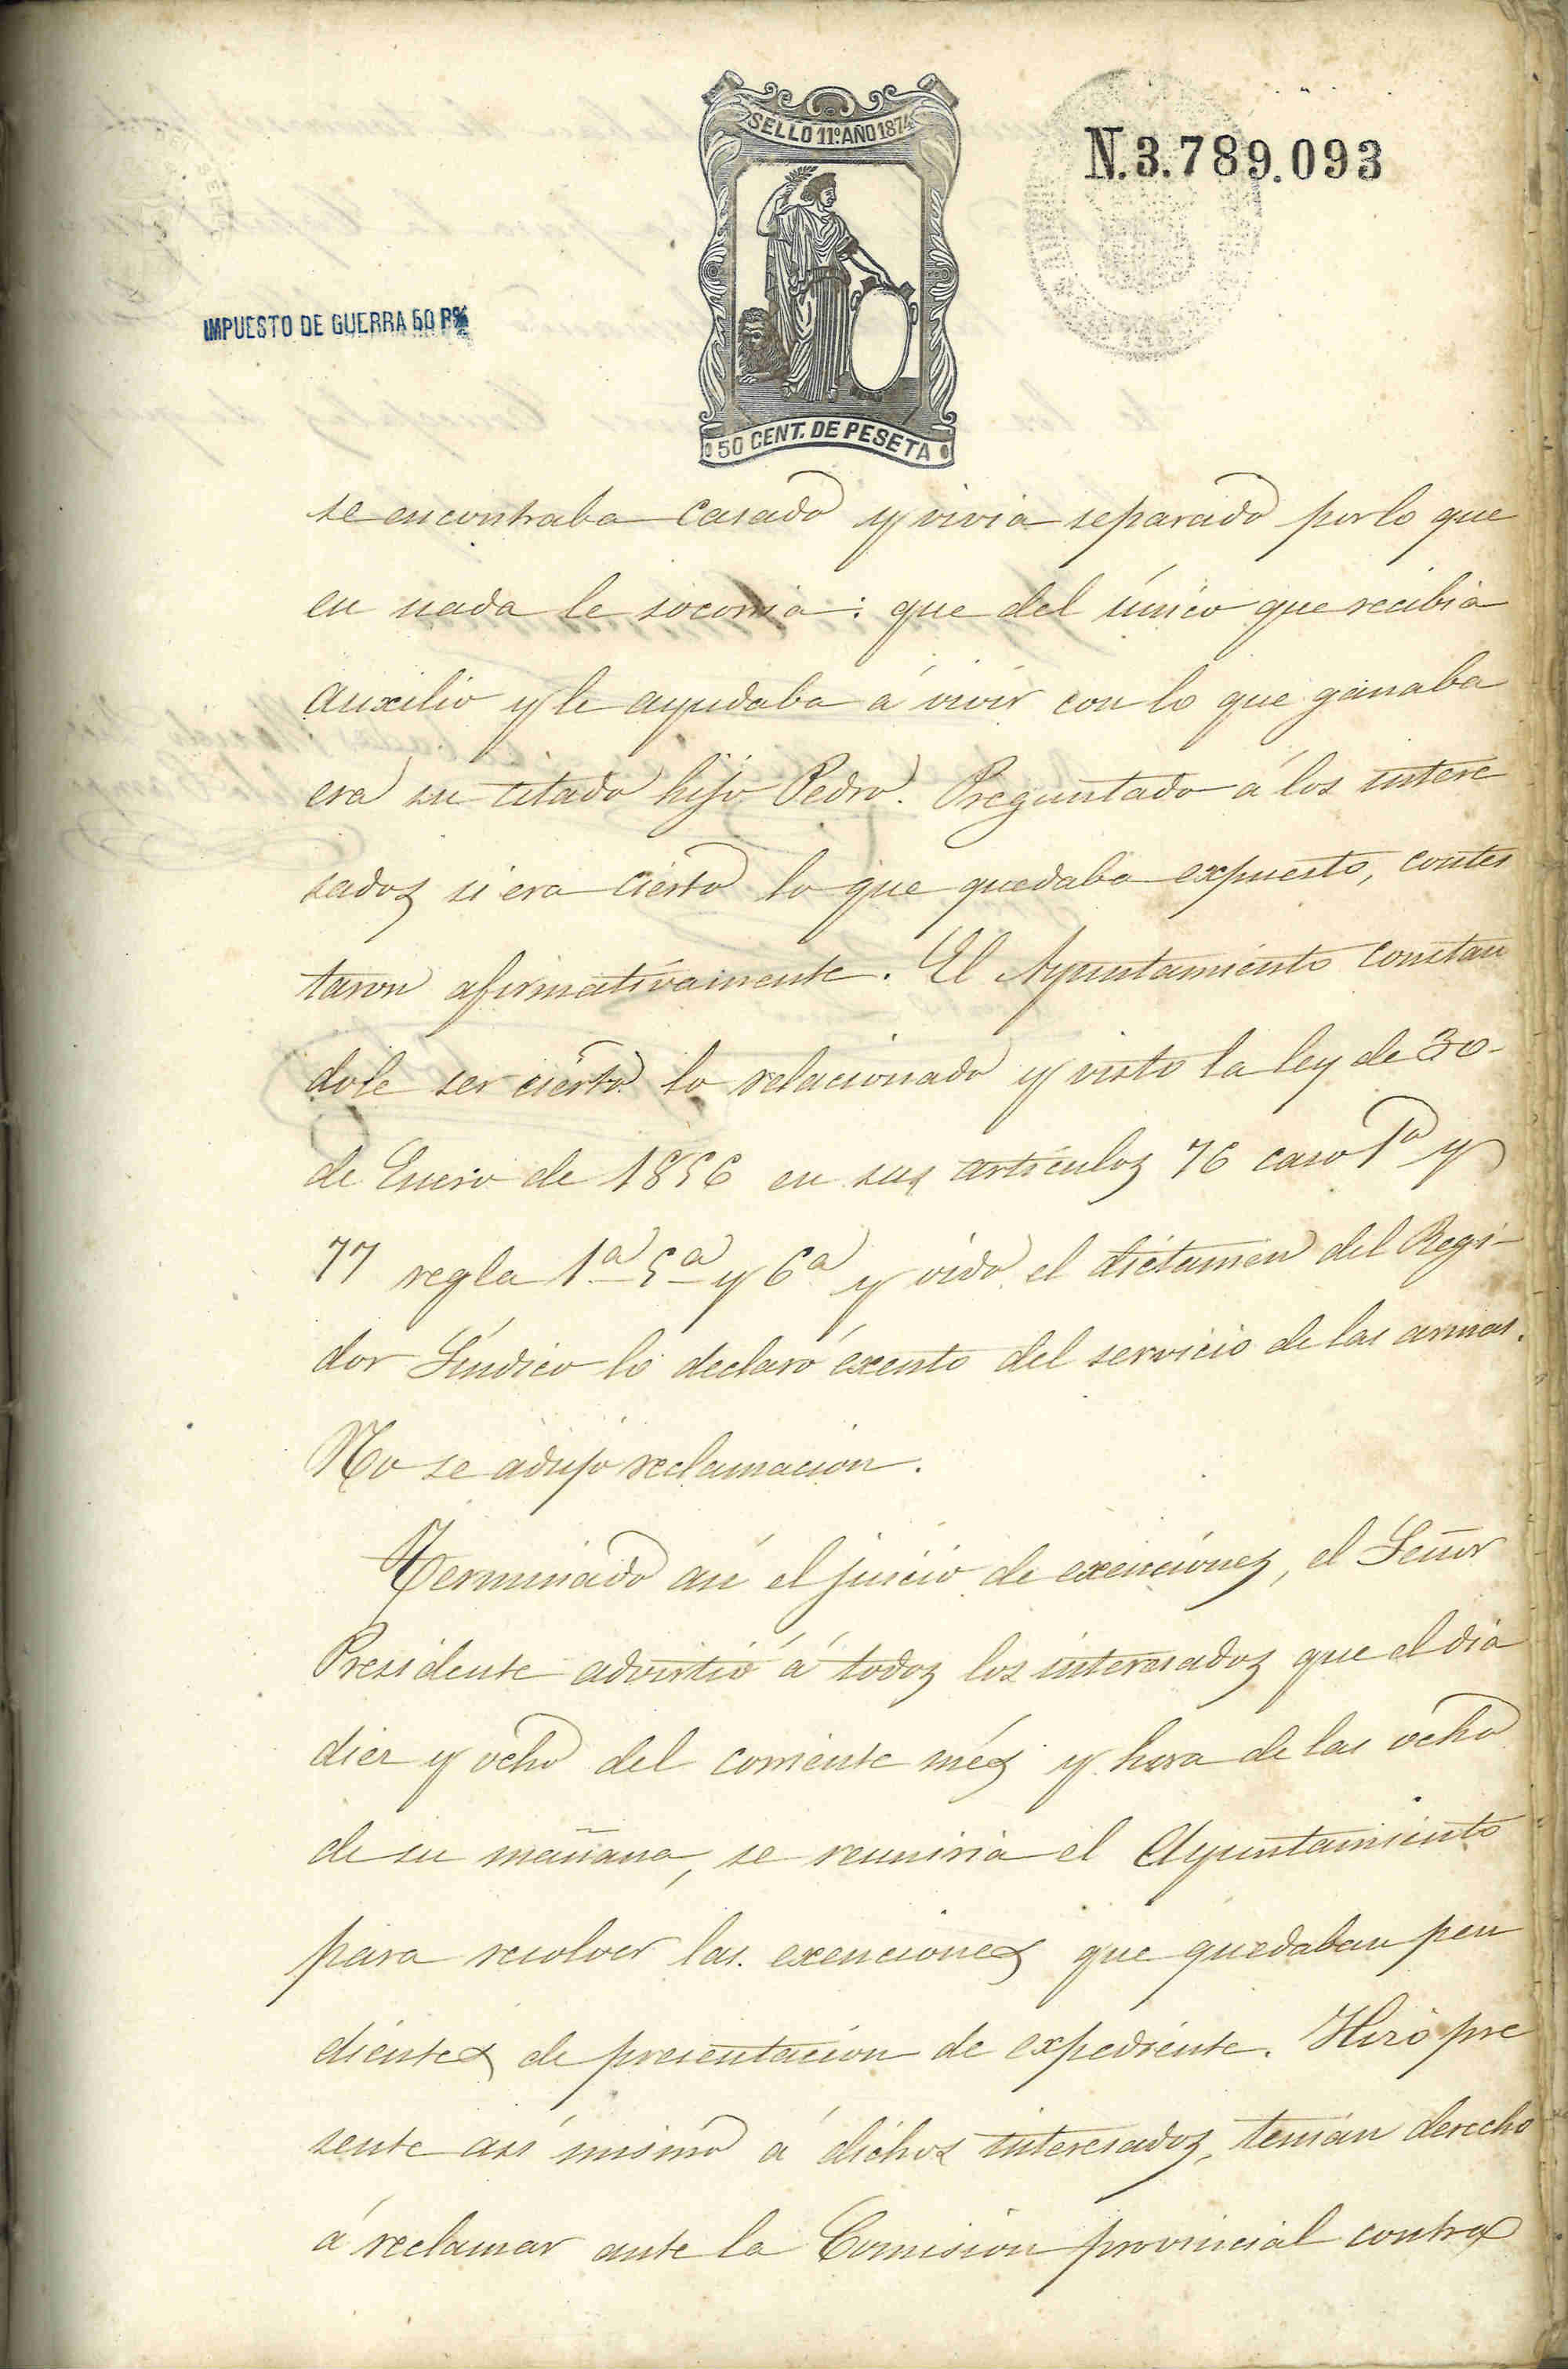 SELLO 11º AÑO 1874
N.3.789.093
IMPUESTO DE GUERRA 50 P%
50 CENT. DE PESETA
se encontraba casado y vivia separado por lo que
en nada le socorria: que del único que recibia
auxilio y le ayudaba á vivir con lo que ganaba
era su citado hijo Pedro. Preguntado á los intere
sados si era cierto lo que quedaba expuesto, contes
taron afirmativamente. El Ayuntamiento constan
dole ser cierto lo relacionado y visto la ley de 30-
de Enero de 1856 en sus artículos 76 caso 1º y
77 regla 1ª 5ª y 6ª y oido el dictamen del Regi-
dor Síndico lo declaró éxento del servicio de las armas.
No se adujo reclamacion.
Terminado asi el juicio de exenciones, el Señor
Presidente advirtió á todos los interesados que el dia
diez y ocho del corriente més y hora de las ocho
de su mañana, se reuniria el Ayuntamiento
para resolver las exenciones que quedaban pen
dientes de presentacion de expediente. Hizo pre
sente así mismo á dichos interesados, tenian derecho
á reclamar ante la Comision provincial contra